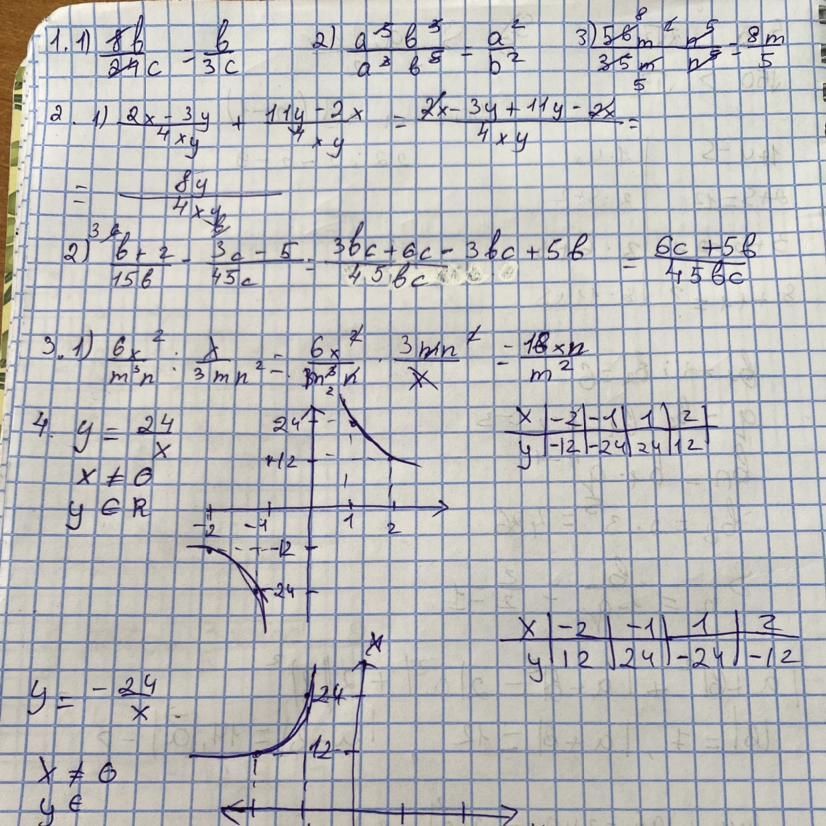 1. 1) 8b/24c = b/3c 2) a⁵b³/a³b⁵ = a²/b² 3) 56m² n⁵/35m n⁵ = 8m/5
2. 1) 2x - 3y/4xy + 11y - 2x/4xy = 2x - 3y + 11y - 2x/4xy =
= 8y/4xy
2) b + 2/15b - 3c - 5/45c = 3bc + 6c - 3bc + 5b/45bc = 6c + 5b/45bc
3. 1) 6x²/m³n : x/3mn² = 6x²/m³n · 3mn²/x = 18xn/m²
4. y = 24/x
x ≠ 0
y ∈ R
24
12
-2 -1 1 2
-12
-24
x -2 -1 1 2
y -12 -24 24 12
x -2 -1 1 2
y 12 24 -24 -12
y = -24/x
x
24
12
x ≠ 0
y ∈